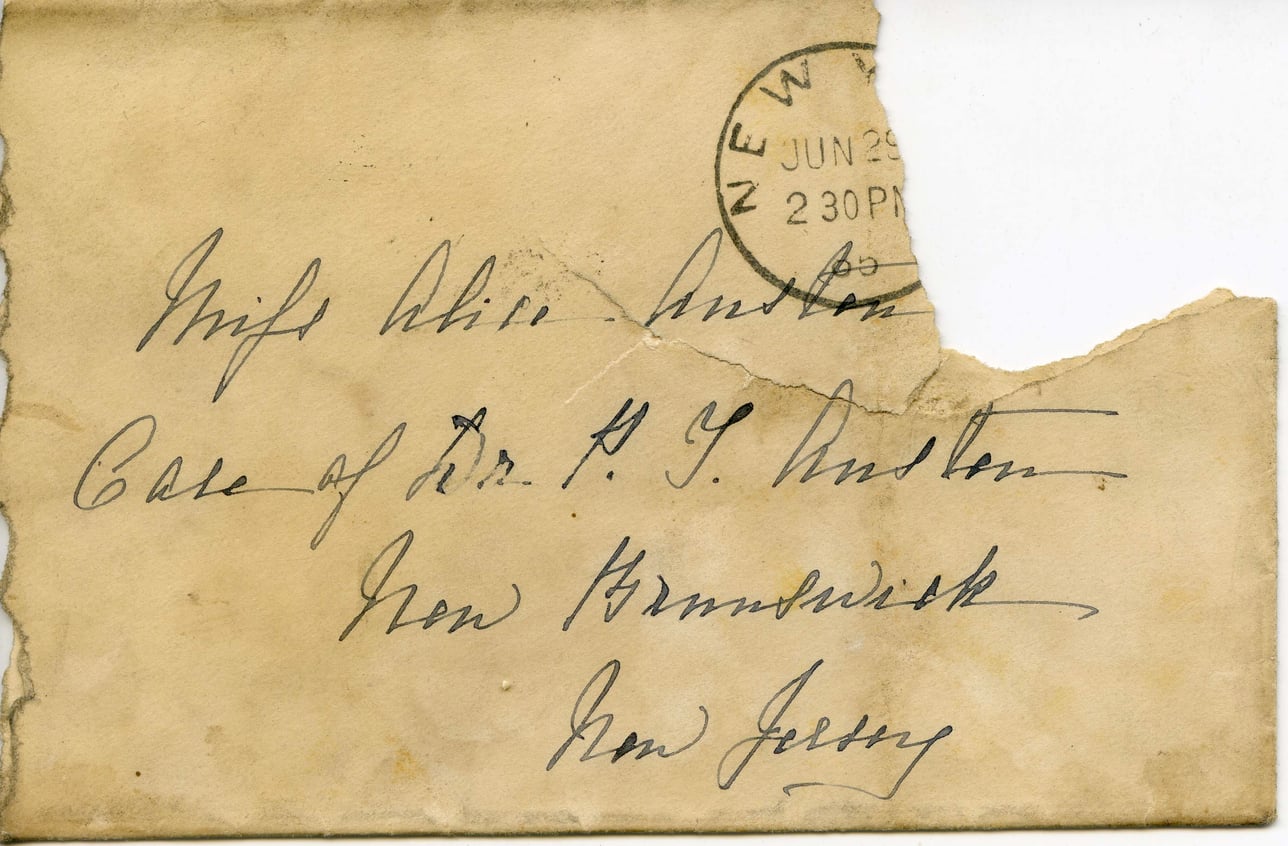 NEW Y
JUN 29
2 30 PM
85
Miss Alice Austen
Care of Dr. P. T. Austen
New Brunswick
New Jersey